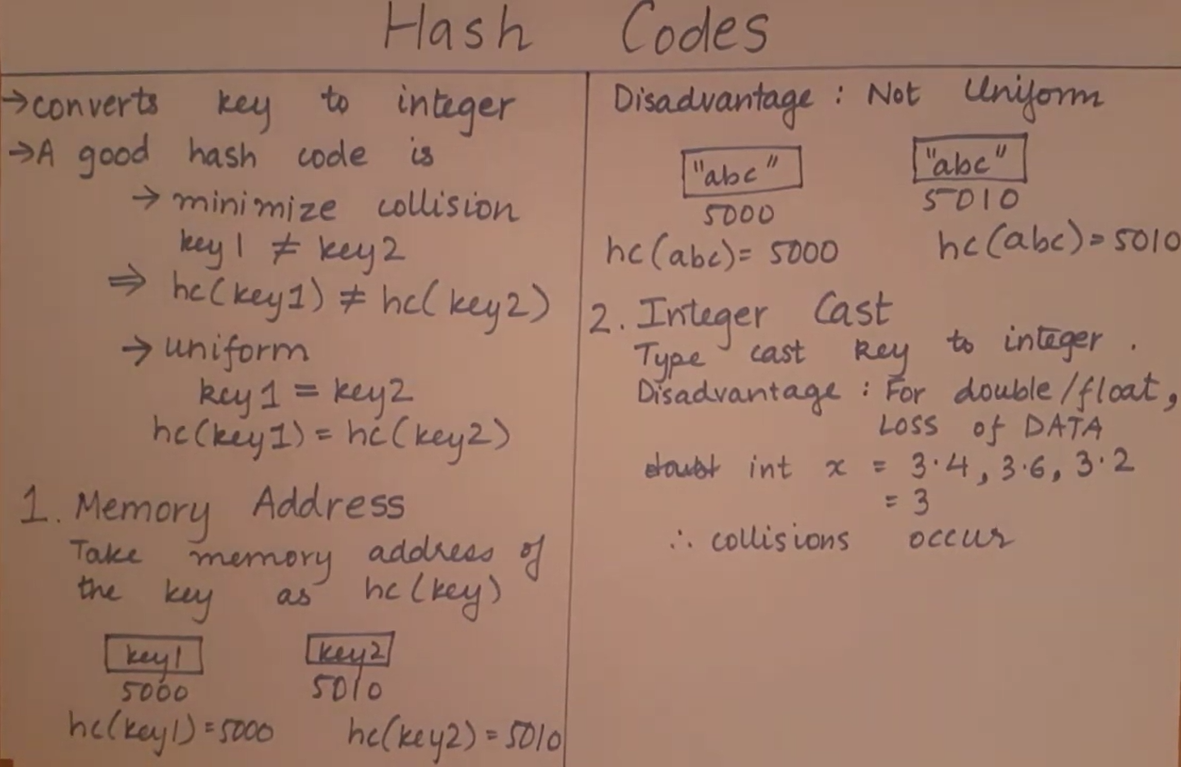 Hash Codes
→converts key to integer
→A good hash code is
→ minimize collision
key1 ≠ key2
⇒ hc(key1) ≠ hc(key2)
→ uniform
key1 = key2
hc(key1) = hc(key2)
1. Memory Address
Take memory address of
the key as hc(key)
key1 key2
5000 5010
hc(key1)=5000 hc(key2)=5010
Disadvantage : Not Uniform
"abc" "abc"
5000 5010
hc(abc)= 5000 hc(abc)=5010
2. Integer Cast
Type cast key to integer.
Disadvantage : For double/float,
LOSS of DATA
int x = 3.4, 3.6, 3.2
= 3
∴ collisions occur